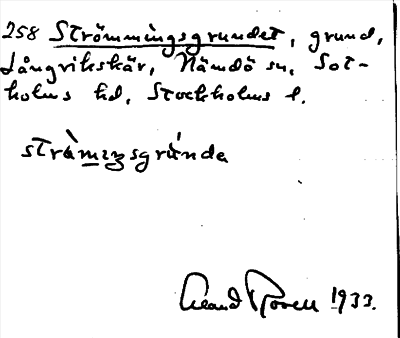 258 Strömmingsgrundet, grund,
Långvikskär, Nämdö sn, Sot-
holms hd, Stockholms l.
stràmıŋsgrúnde
1933.